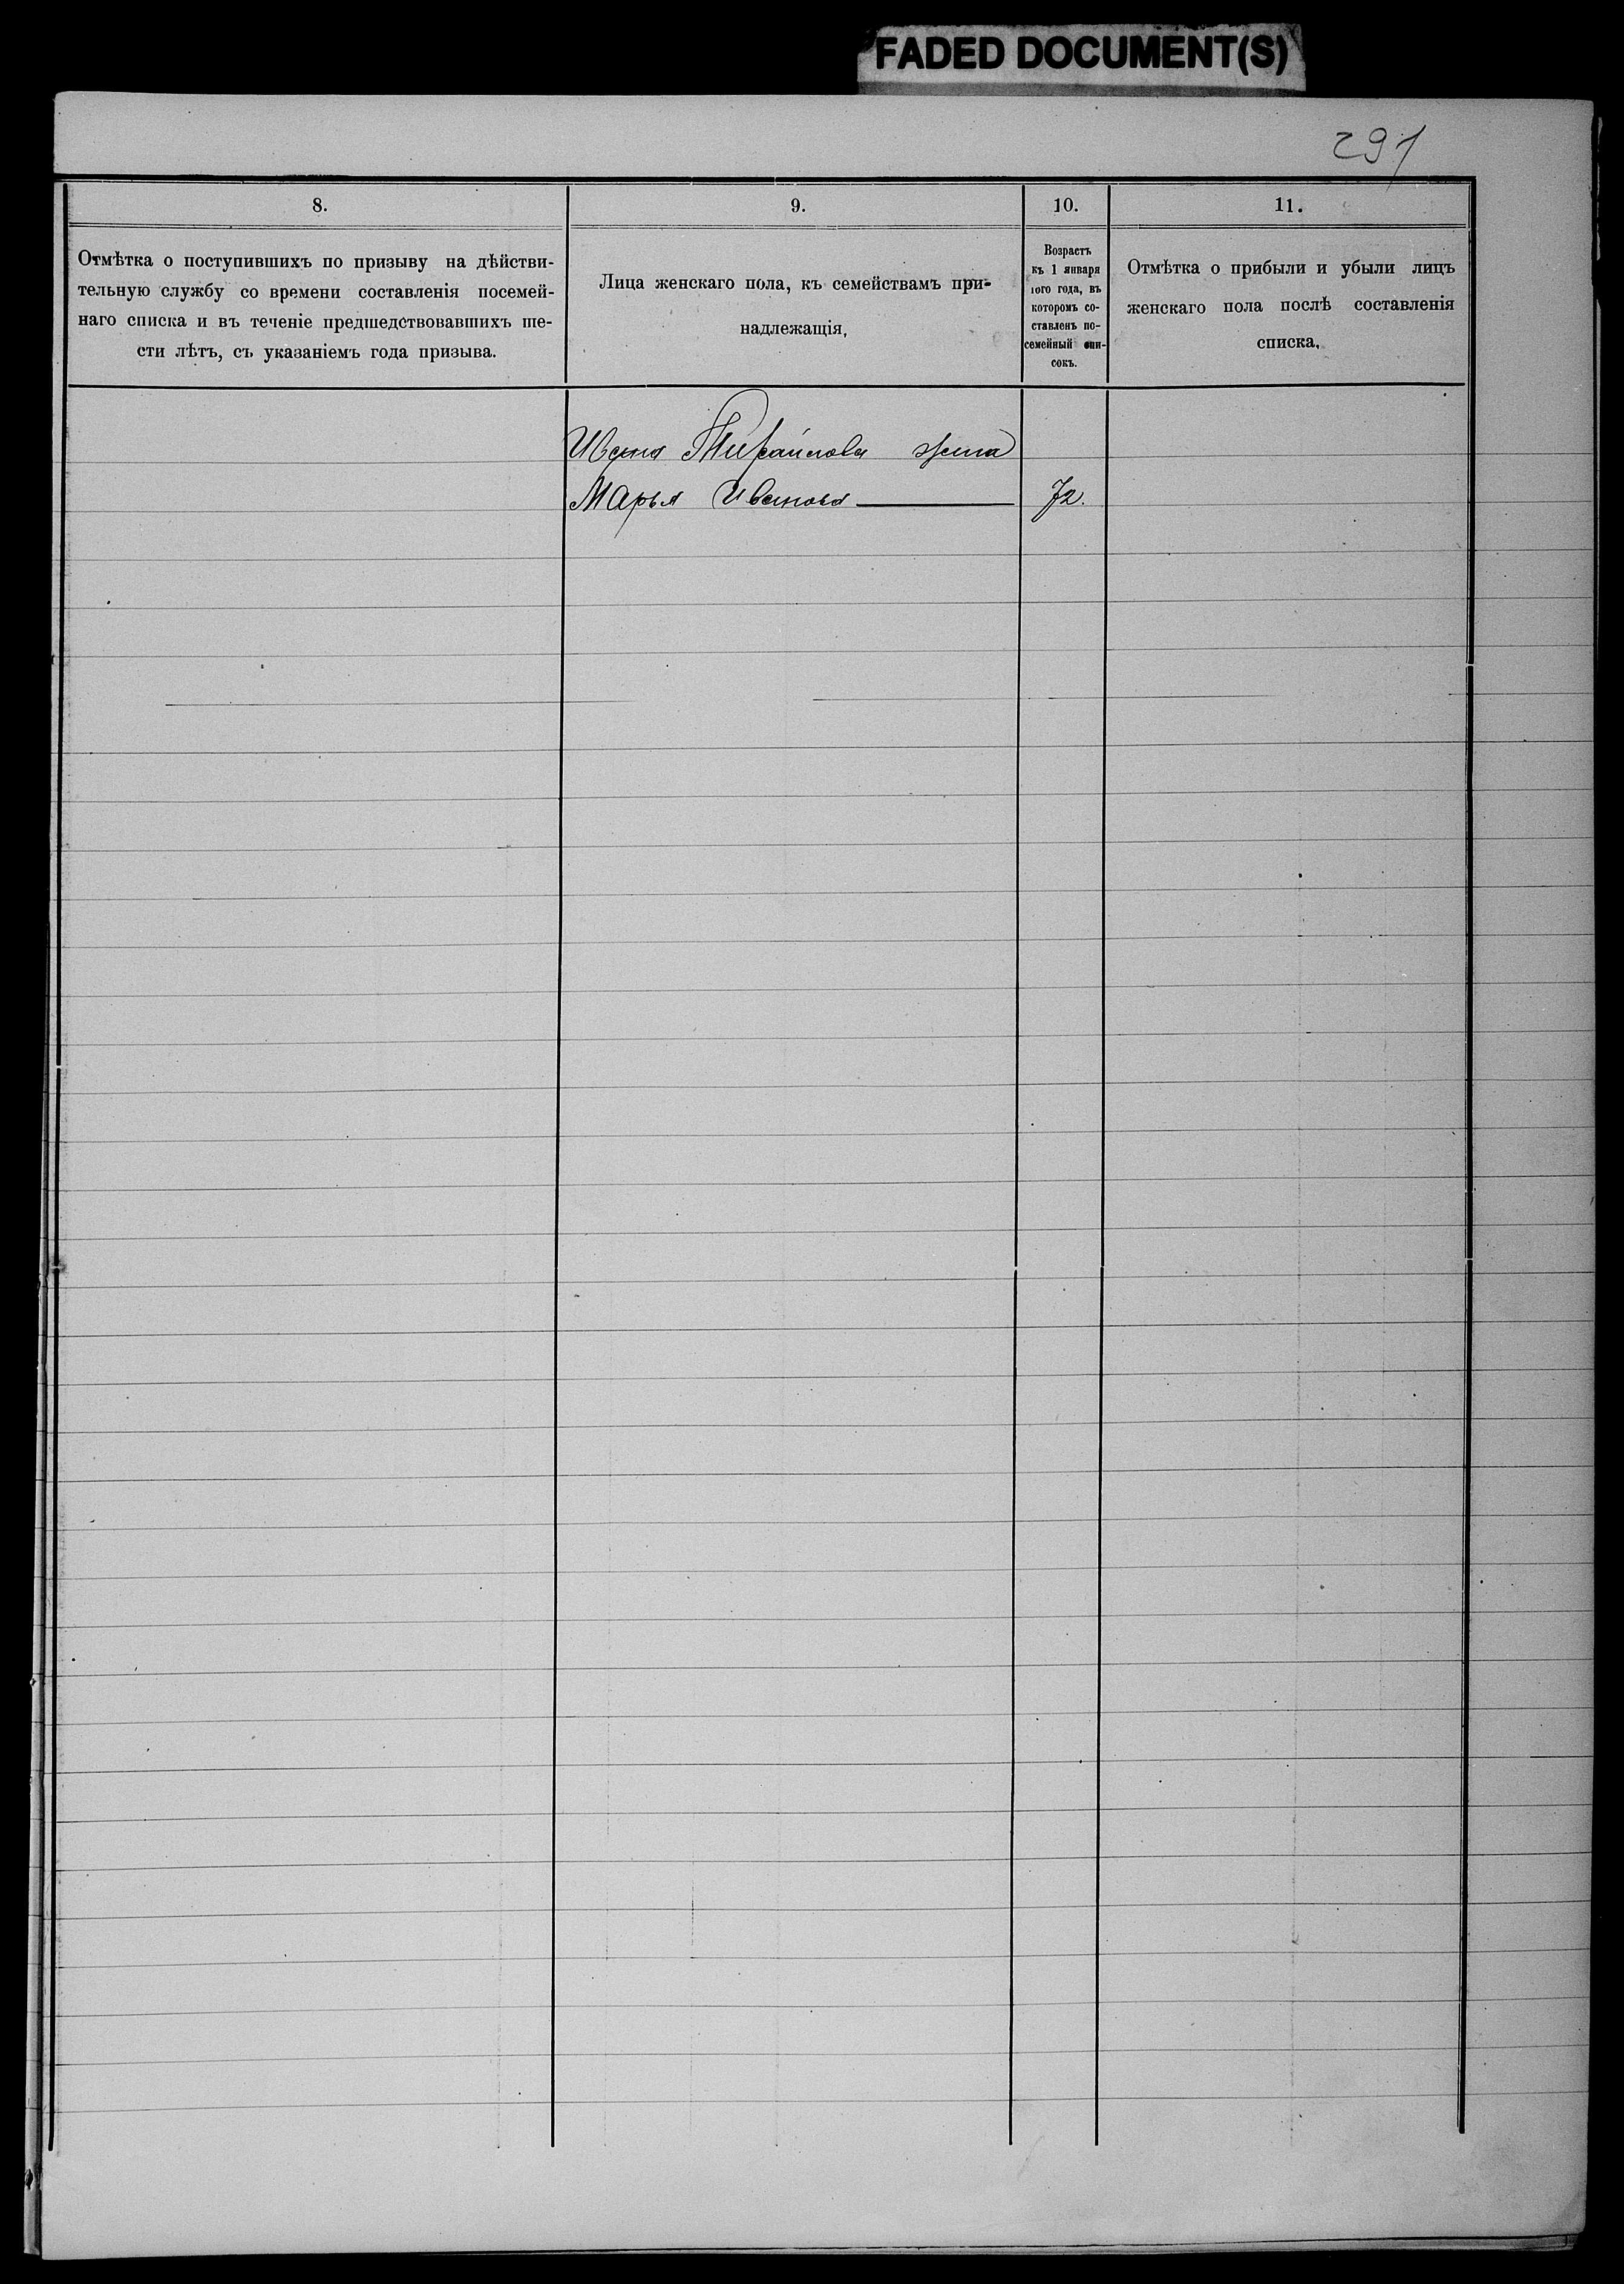 FADED DOCUMENT(S)
291
8.
9.
10.
11.
Отмѣтка о поступившихъ по призыву на дѣйстви-
тельную службу со времени составленія посемей-
наго списка и въ теченіе предшедствовавшихъ ше-
сти лѣтъ, съ указаніемъ года призыва.
Лица женскаго пола, къ семействамъ при-
надлежащія,
Возрастъ
къ 1 января
1ого года, въ
которомъ со-
ставленъ по-
семейный спи-
сокъ.
Отмѣтка о прибыли и убыли лицъ
женскаго пола послѣ составленія
списка.
Ивана Михайлова жена
Марья Иванова 72.